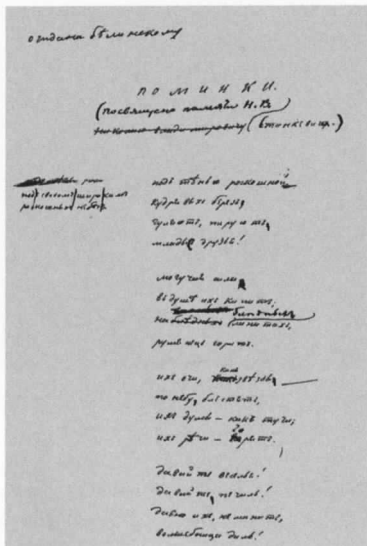 отдана Белинскому
ПОМИНКИ.
(посвящено памяти Н. В.
подъ тѣнью роскошной
кудрявыхъ березъ
гуляютъ, пируютъ
младые друзья!
могучая сила
въ душѣ ихъ кипитъ;
на блѣдныхъ ланитахъ
румянецъ горитъ.
ихъ очи, какъ звѣзды
по небу, блестятъ;
ихъ думы – какъ тучи;
ихъ рѣчи – горятъ.
давайте веселья!
давайте печаль!
давно ихъ не манитъ,
волшебница даль!